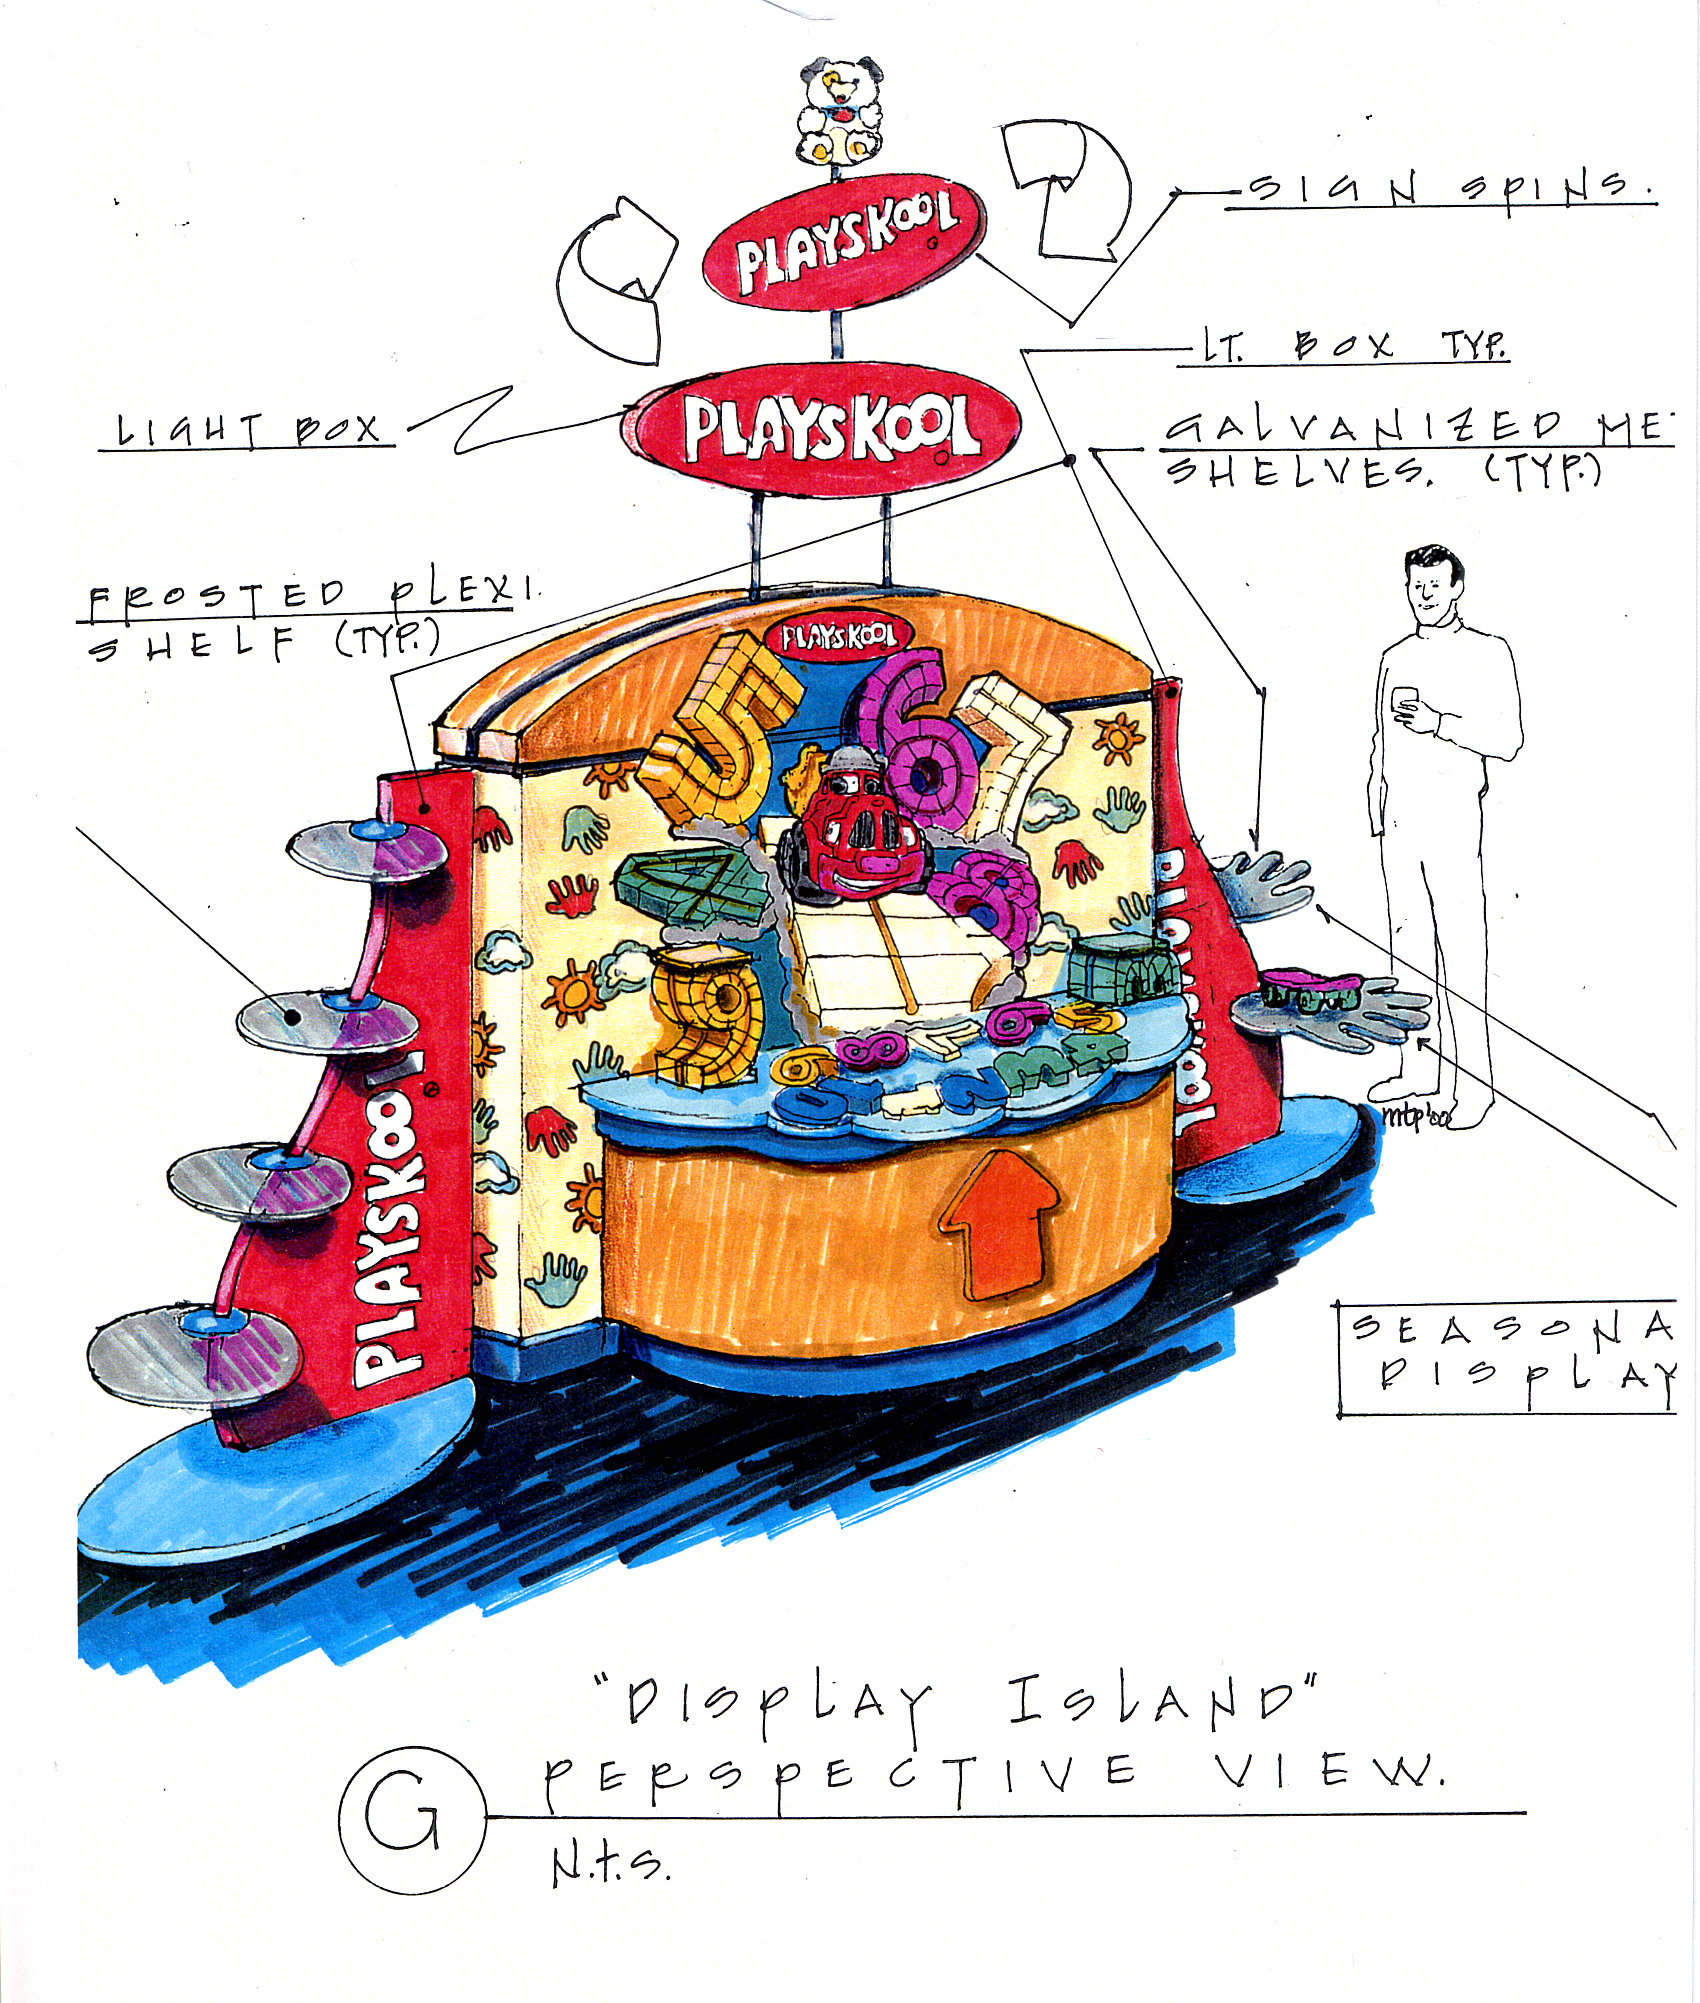 PLAYSKOOL
SIGN SPINS.
LT. BOX TYP.
PLAYSKOOL
LIGHT BOX
GALVANIZED ME
SHELVES. (TYP.)
FROSTED PLEXI.
SHELF (TYP.)
PLAYSKOOL
5 6 7
4 8
9
9 8 7 6 5
PLAYSKOOL
PLAYSKOOL
mtp '00
SEASONA
DISPLAY
"DISPLAY ISLAND"
PERSPECTIVE VIEW.
G
N.t.s.